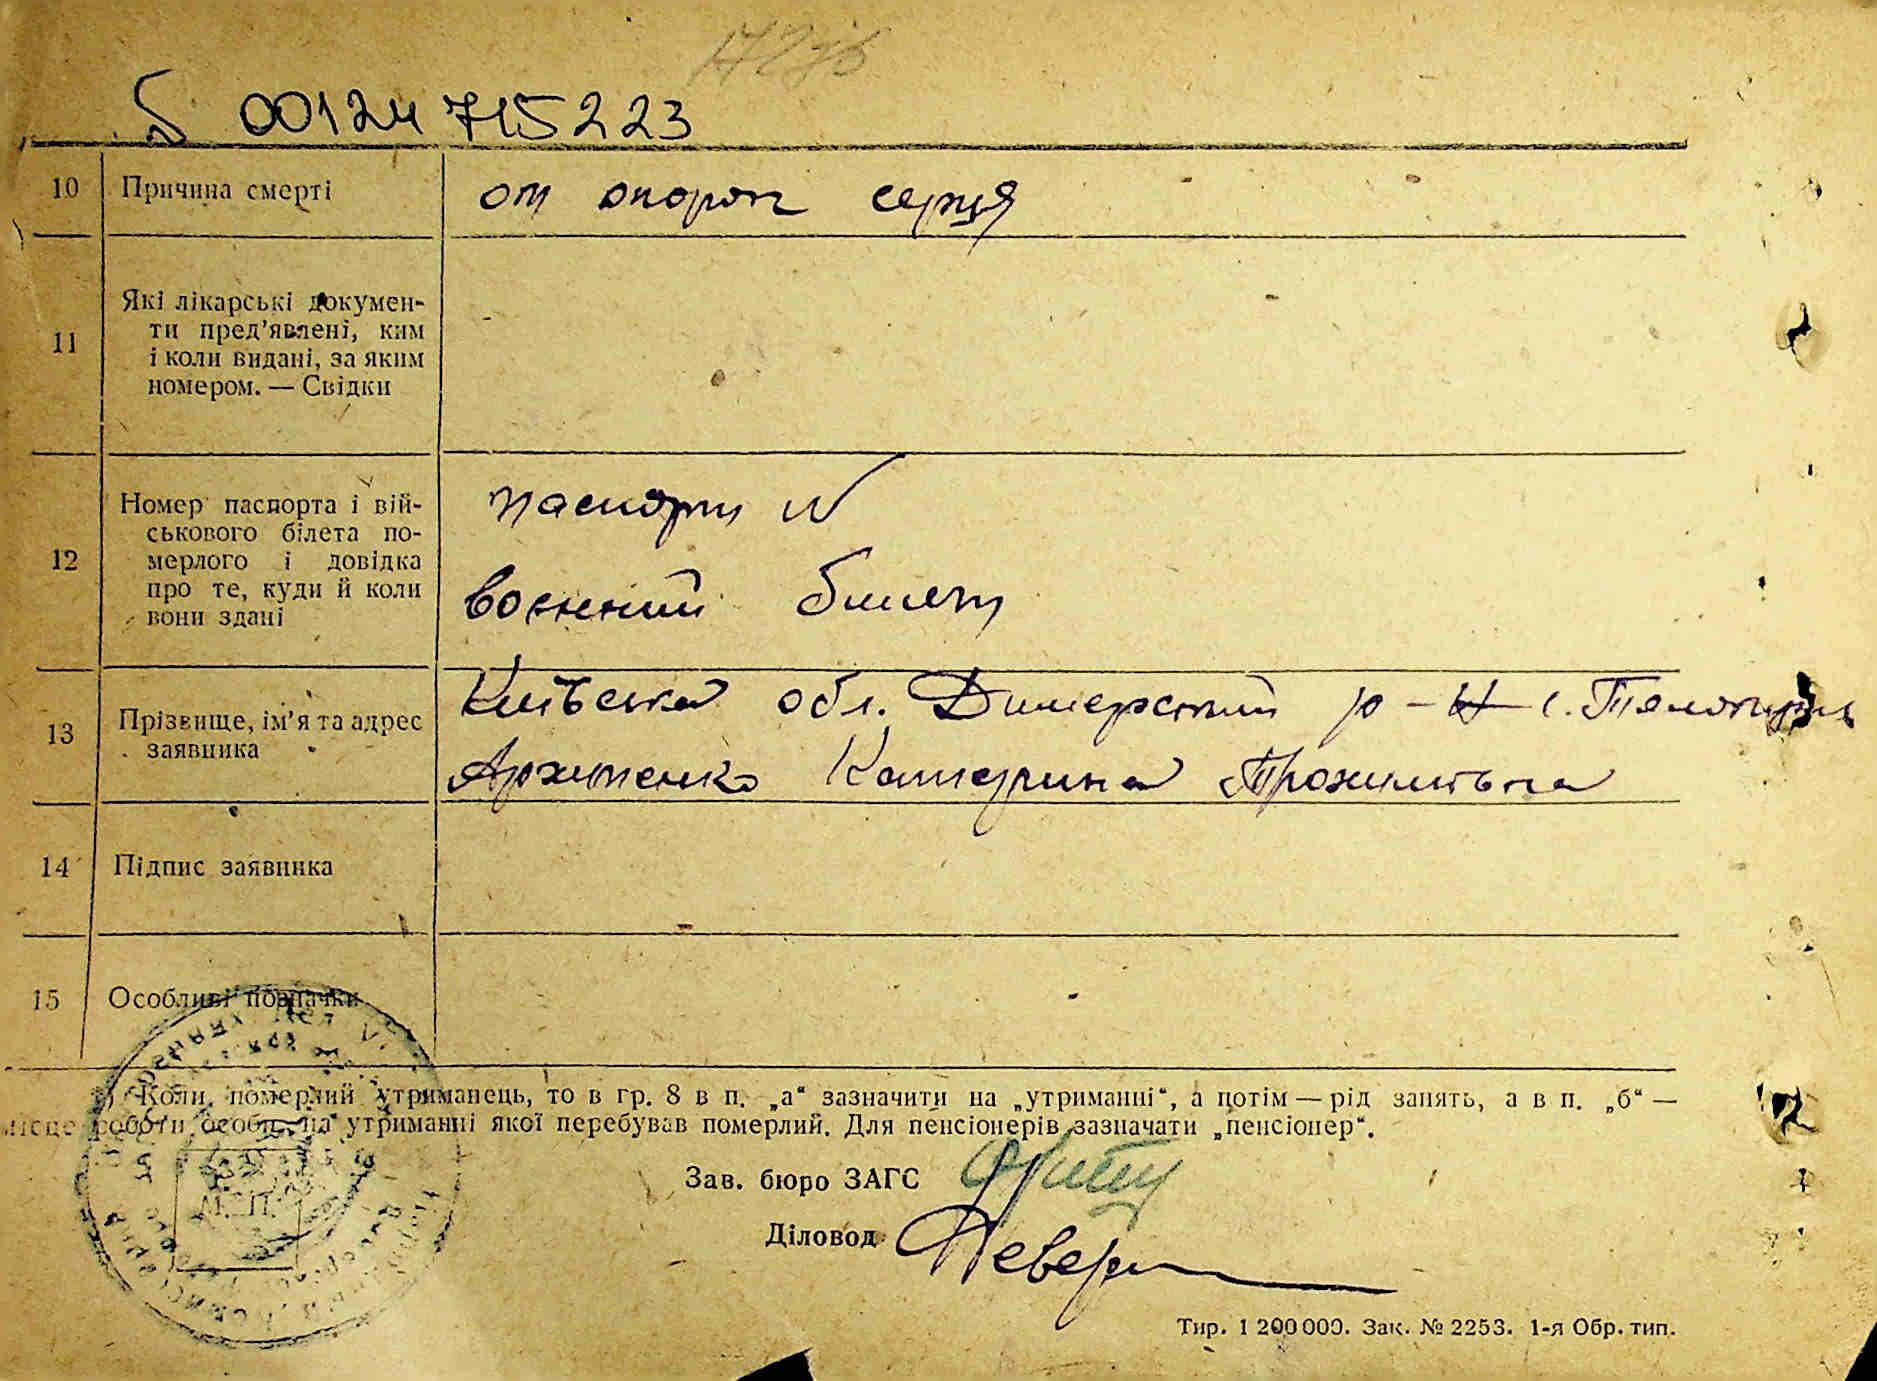 00124 715223
10 Причина смерті от порок серця
11 Які лікарські докумен-
ти пред’явлені, ким
і коли видані, за яким
номером. — Свідки
12 Номер паспорта і вій-
ськового білета по-
мерлого і довідка
про те, куди й коли
вони здані
паспорт №
воєнний билет
13 Прізвище, ім’я та адрес
заявника
Київська обл. Димерський р-н с.
Архипенко Катерина
14 Підпис заявника
15 Особливі позначки
Коли померлий утриманець, то в гр. 8 в п. „а“ зазначити на „утриманні“, а потім — рід занять, а в п. „б“ —
місце роботи особи, на утриманні якої перебував померлий. Для пенсіонерів зазначати „пенсіонер“.
М. П.
Зав. бюро ЗАГС
Діловод
Тир. 1 200 000. Зак. № 2253. 1-я Обр. тип.